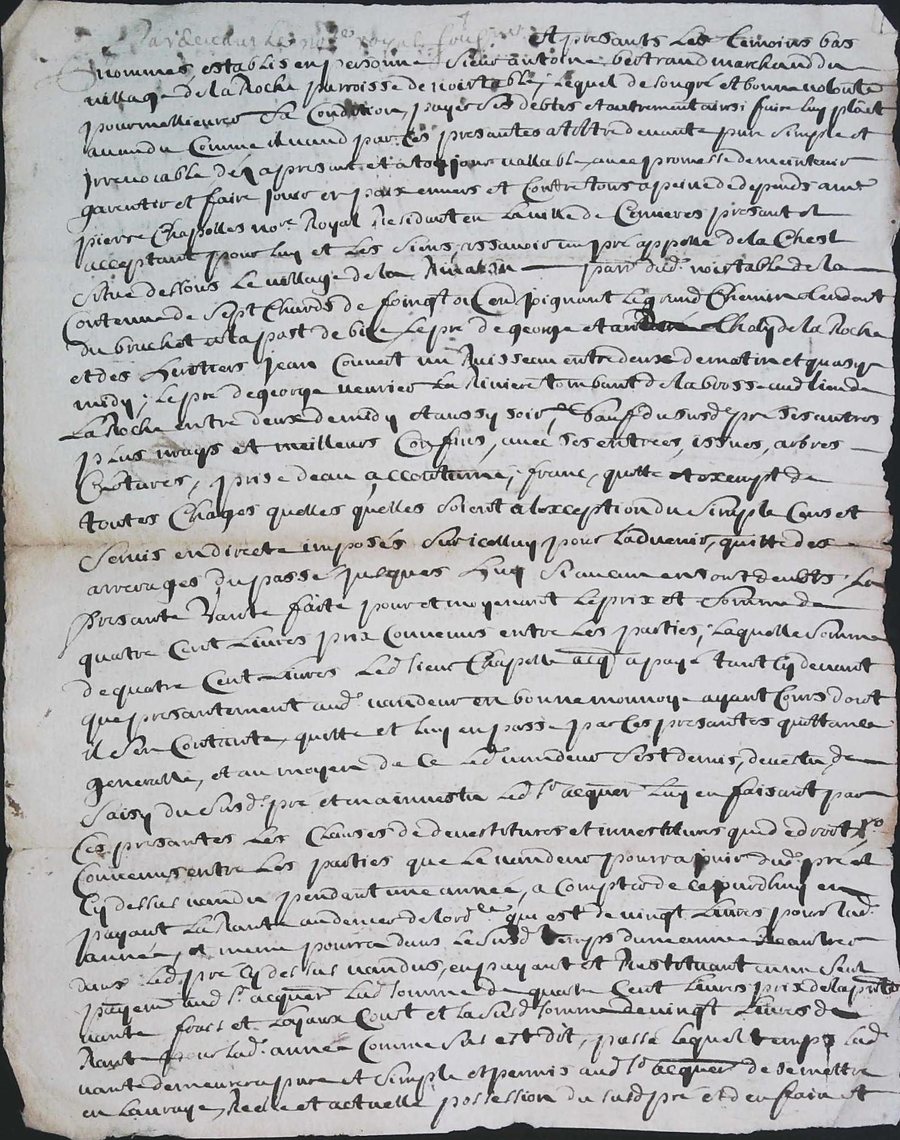 Pardevant le no.re royal soubsne et presants les temoins bas
nommes establis en personne Sieur antoine bertrand marchand du
village de la Roche parroisse de noirtable, lequel de son gre et bonne volonte
pour meilleurer sa Condition, payer ses debtes et autrement ainsi faire luy plait
a vandu Comme il vand par Ces presantes a tiltre de vante pure simple et
irrevocable des a presant et a toujour vallable, avec promesse de maintenir
garentir et faire jouir en paix envers et Contre tous a peine de depends a mr
pierre Chapelles nore. Royal Residant en la ville de Cervieres presant et
acceptant pour luy et les siens, assavoir un pré appellé de la Chest
Situé dessous le village de la parr. dud. noirtable de la
Contenue de sept Chards de foin joignant le grand Chemin tendant
du bruchet a la part de bize, le pré de george et Chaly de la Roche
et des heritiers jean Couvert un Ruisseau entre deux de matin et quasy
midy; le pré de george verrier la Riviere tombant de la au lieu de
La Roche entre deux de midy et aussy soir, Sauf du susd. pré ses autres
plus vrays et meilleurs Confins, avec ses entrées, issues, arbres
Clotures, prise deau accoutumé; franc, quitte et exempt de
toutes Charges quelles quelles soient a lexception du simple Cens et
Servis en directe imposés sur icelluy pour ladvenir, quitte des
arrerages du passé jusques huy si aucuns en sont deubts. La
Presante Vante faite pour et moyenant le prix et Somme de
quatre Cent Livres prix Convenus entre les parties; laquelle somme
de quatre Cent Livres led. sieur Chapelle acq.r a payé tant Cy devant
que presantement aud. vandeur en bonne monnoye ayant Cours dont
il sen Contante, quitte et luy en passe par Ces presantes quittance
generalle, et au moyen de Ce led. vandeur sest demis, devestu, de
Saisy du susd. pré et en a investu led. sr. acquer luy en faisant par
Ces presantes les Clauses de devestitures et investitures quid de droit
Convenus entre les parties que le vandeur pourra jouir dud. pré
Cy dessus vandu pendant une année, a Compter de cejourdhuy en
payant la Rante au denier de lord.ce qui est de vingt Livres pour lad.
année, et meme pourra dans le susd. temps dune année Reantrer
dans led. pré Cy dessus vandus, en payant et Restituant en un seul
payem.t aud. sr. acquer lad. somme de quatre Cent Livres prix de la prnte
vante frais et Loyaux Cout et la susd. somme de vingt Livres de
Rante pour lad. année Comme sus est dit, passé lequel temps lad.
vante demeurera pure et simple et permis aud. sr. acquer de se mettre
en la vraye, Reelle et actuelle possession du susd. pré et den faire et